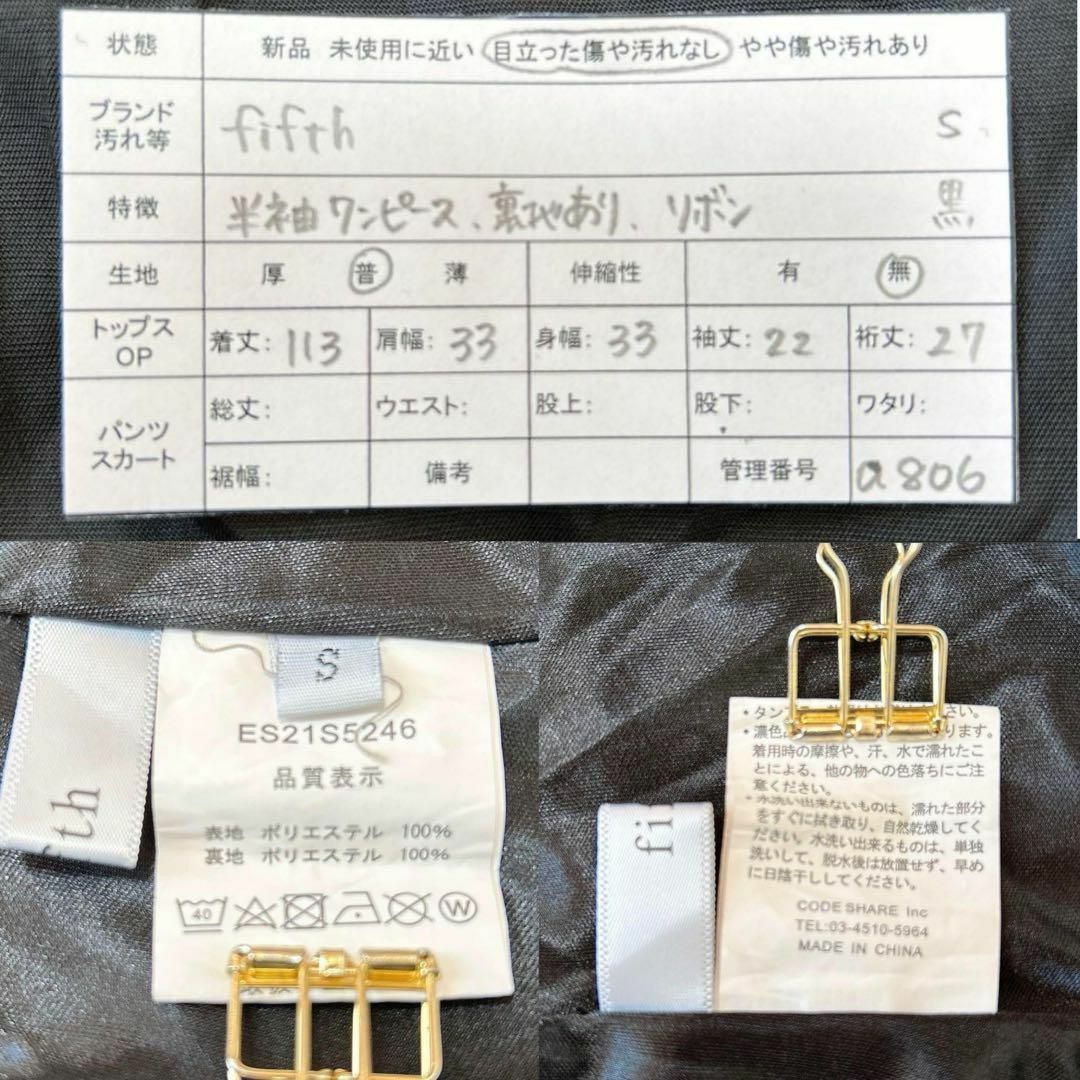 状態 新品 未使用に近い 目立った傷や汚れなし やや傷や汚れあり
ブランド
汚れ等 fifth S
特徴 半袖ワンピース、裏地あり、リボン 黒
生地 厚 普 薄 伸縮性 有 無
トップス
OP 着丈: 113 肩幅: 33 身幅: 33 袖丈: 22 裄丈: 27
パンツ
スカート 総丈: ウエスト: 股上: 股下: ワタリ:
裾幅: 備考 管理番号 a806
S
th
ES21S5246
品質表示
表地 ポリエステル 100%
裏地 ポリエステル 100%
40 W
・タン さい。
・濃色 ります。
着用時の摩擦や、汗、水で濡れたこ
とによる、他の物への色落ちにご注
意ください。
・水洗い出来ないものは、濡れた部分
をすぐに拭き取り、自然乾燥してく
ださい。水洗い出来るものは、単独
洗いして、脱水後は放置せず、早め
に日陰干ししてください。
CODE SHARE Inc
TEL:03-4510-5964
MADE IN CHINA
fi